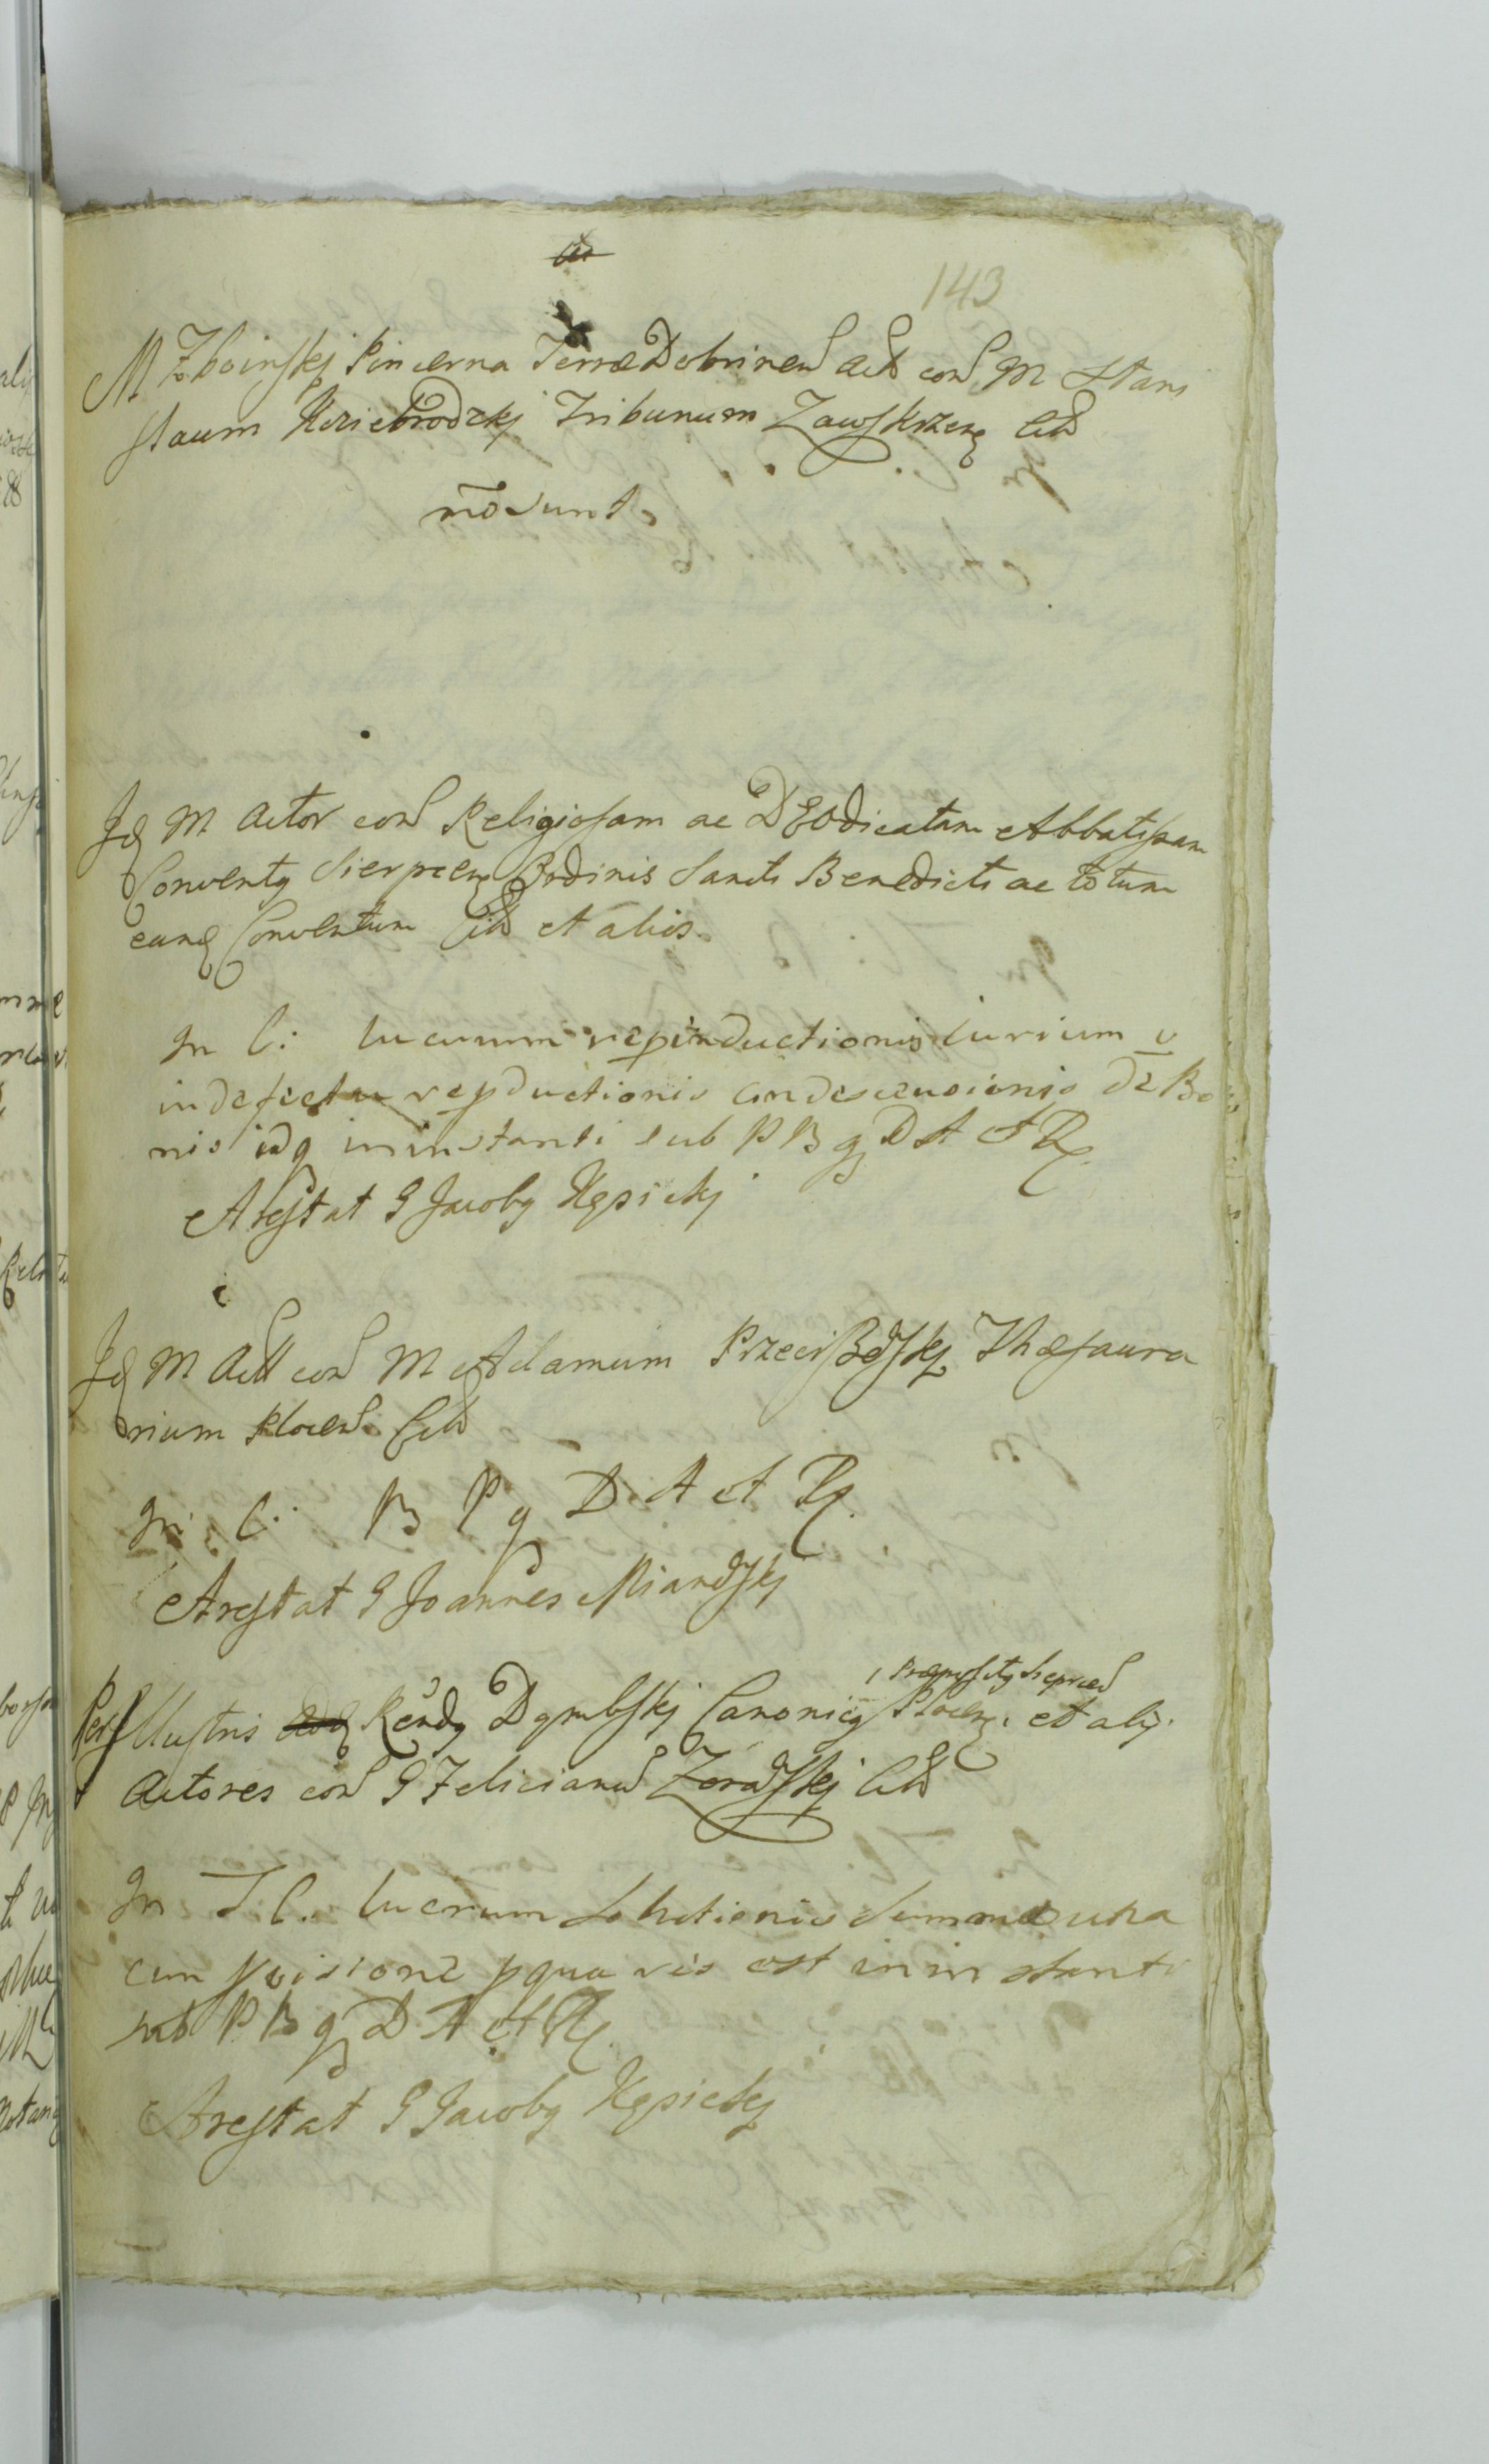 143
M Zboinskj Pincerna Terræ Dobrinen Act con M Stani
slaum Niszczebrodzkj Tribunum Zawskrzen Cit
nō sunt
Id M Actor con Religiosam ac DEOdicatam Abbatissam
Conventq Sierpcen Ordinis Sancti Benedicti ac totum
eund Conventum Cit et alios
In C: lucrum repinductionis iurium v
indefectu repductionis condescensionis de Bo
nis idq ininstanti sub P B q D A et R
Arestat G Jacobq Kępickj
Id M Act con M Adamum Przeciszewskj Thæsaura
rium Plocen Cit
In C: B P q D A et R
Arestat G Joannes Mianowskj
Præpositq Siepcen
Perillustris Rēndq Dębskj Canonicq Plocen et alij
Actores con G Felicianū Zorawskj Cit
In T C. lucrum solutionis summæ una
cum pvisione p qua vis est ininstanti
sub P B q D A et R
Arestat G Jacobq Kępickj